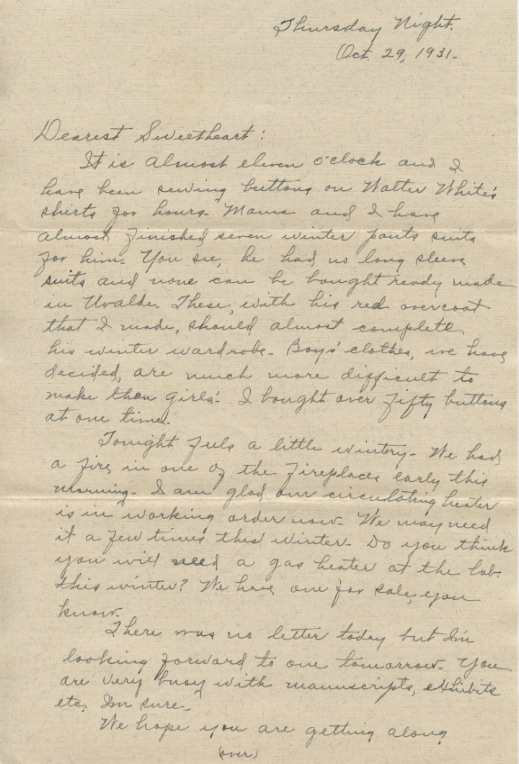 Thursday Night.
Oct. 29, 1931.
Dearest Sweetheart:
It is almost eleven o'clock and I
have been sewing buttons on Walter White's
shirts for hours. Mama and I have
almost finished seven winter pants suits
for him. You see, he had no long sleeve
suits and none can be bought ready made
in Uvalde. These, with his red overcoat
that I made, should almost complete
his winter wardrobe. Boys' clothes, we have
decided, are much more difficult to
make than girls'. I bought over fifty buttons
at one time.
Tonight feels a little wintery. We had
a fire in one of the fireplaces early this
morning. I am glad our circulating heater
is in working order now. We may need
it a few times this winter. Do you think
you will need a gas heater at the lab.
this winter? We have one for sale, you
know.
There was no letter today but I'm
looking forward to one tomorrow. You
are very busy with manuscripts, exhibits
etc. I'm sure.
We hope you are getting along
(over)